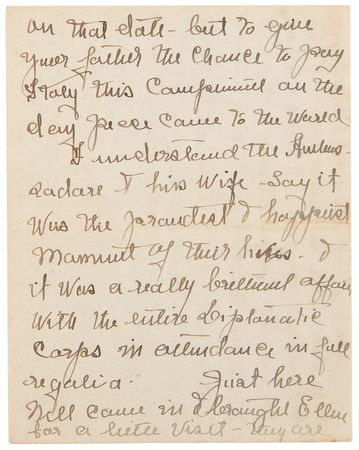 on that date - but to give
your father the chance to pay
Italy this Compliment on the
day peace came to the World
I understand the Ambas-
sadore & his Wife - Say it
was the proudest & happiest
Mamunt of their lives. &
it was a really brilliant affair
with the entire Diplomatic
Corps in attendance in full
regalia. Just here
Will came in & braught Ellen
for a little Visit - they are